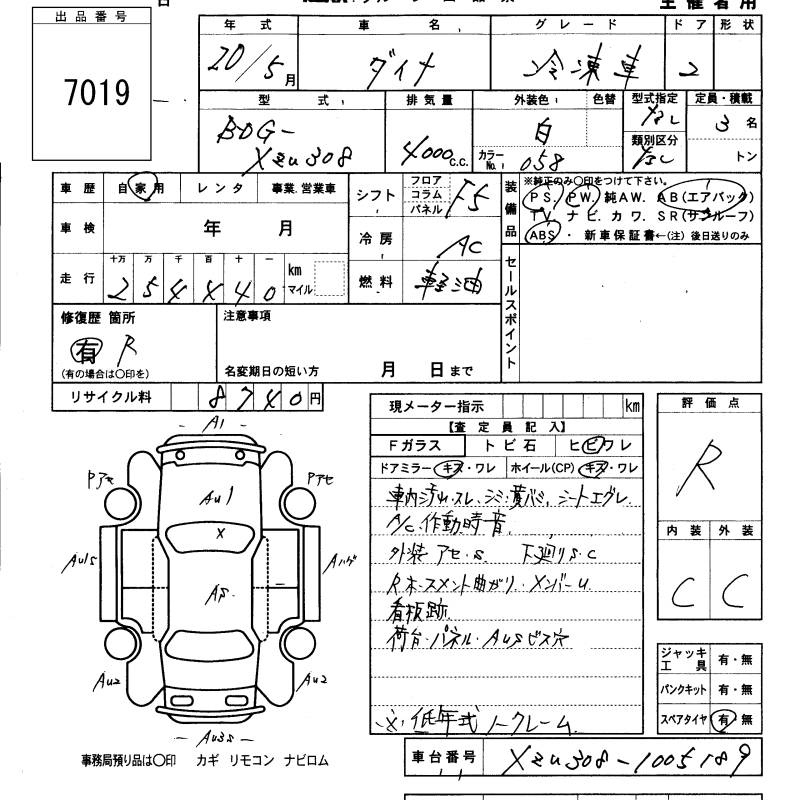 出品番号
7019
年式 車名 グレード ドア 形状
20/5月 ダイナ 冷凍車 2
型式 排気量 外装色 色替 型式指定 定員・積載
BDG-XZU308 4000c.c. 白 カラーNo. 058 なし 3名
類別区分 なし トン
車歴 自家用 レンタ 事業.営業車
シフト フロア コラム パネル F5
装備品 ※純正のみ〇印をつけて下さい。
PS. PW. 純AW. AB(エアバック)
TV. ナビ. カワ. SR(サンルーフ)
ABS・ 新車保証書←(注) 後日送りのみ
車検 年 月
冷房 AC
走行 十万 万 千 百 十 一 km マイル
254440
燃料 軽油
セールスポイント
修復歴 箇所
有 R
(有の場合は〇印を)
注意事項
名変期日の短い方 月 日まで
リサイクル料 8740円
現メーター指示 km
【査定員記入】
Fガラス トビ石 ヒビワレ
ドアミラー キズ・ワレ ホイール(CP) キズ・ワレ
車内汚れ・スレ、シミ・黄バミ、シートエグレ
A/C作動時音
外装アセ・S. 下廻りS・C
Rホースメント曲がり・メンバーU
看板跡
荷台・パネル・AUSビス穴
※低年式ノークレーム
評価点
R
内装 外装
C C
ジャッキ工具 有・無
パンクキット 有・無
スペアタイヤ 有・無
A1
Pアセ
Pアセ
AU1
X
AU1S
Aハゲ
AS.
AU2
AU2
AU3S
事務局預り品は〇印 カギ リモコン ナビロム
車台番号 XZU308-1005189